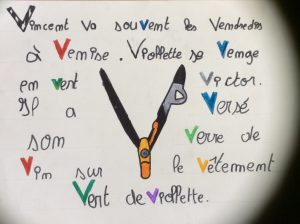 Vincent va souvent les Vendredis
à Vemise. Violette se Venge
en vent Victor.
Il a Versé
son Verre de
Vin sur le vêtement
Vert de violette.